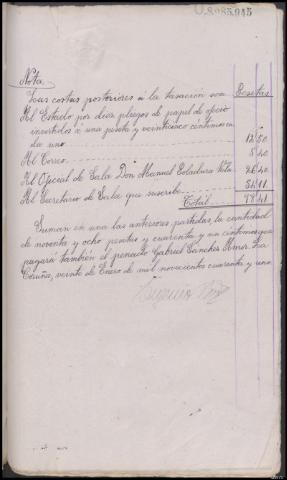 U.8985.945
Nota
Las costas posteriores á la tasación son Pesetas
Al Estado por diez pliegos de papel de oficio
invertidos á una peseta y veinticinco céntimos ca
da uno 12 50
Al Correo 5 40
Al Oficial de Sala Don Manuel 26 40
Al Secretario de Sala que suscribe 54 11
Total 98 41
Suman en una las anteriores partidas, la cantidad
de noventa y ocho pesetas y cuarenta y un céntimos que
pagará también el penado Gabriel Sánchez La
Coruña, veinte de Enero de mil novecientos cuarenta y uno